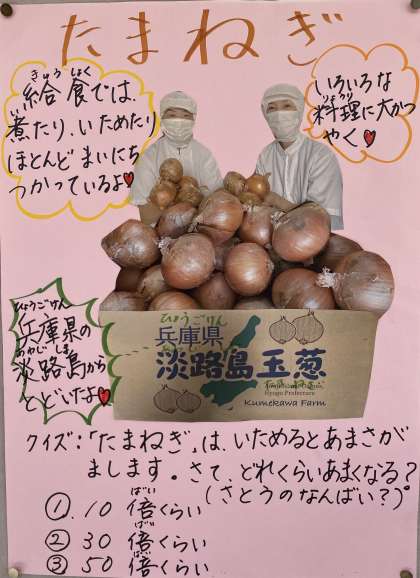 たまねぎ
きゅうしょく
給食では、
煮たり、いためたり
ほとんどまいにち
つかっているよ
いろいろな
りょうり
料理に大かつ
やく
ひょうごけん
兵庫県の
あわじしま
淡路島から
とどいたよ
ひょうごけん
兵庫県
淡路島玉葱
Hyogo Prefecture
Kumekawa Farm
クイズ:「たまねぎ」は、いためるとあまさが
まします。さて、どれくらいあまくなる?
(さとうのなんばい?)
ばい
① 10倍くらい
ばい
② 30倍くらい
ばい
③ 50倍くらい